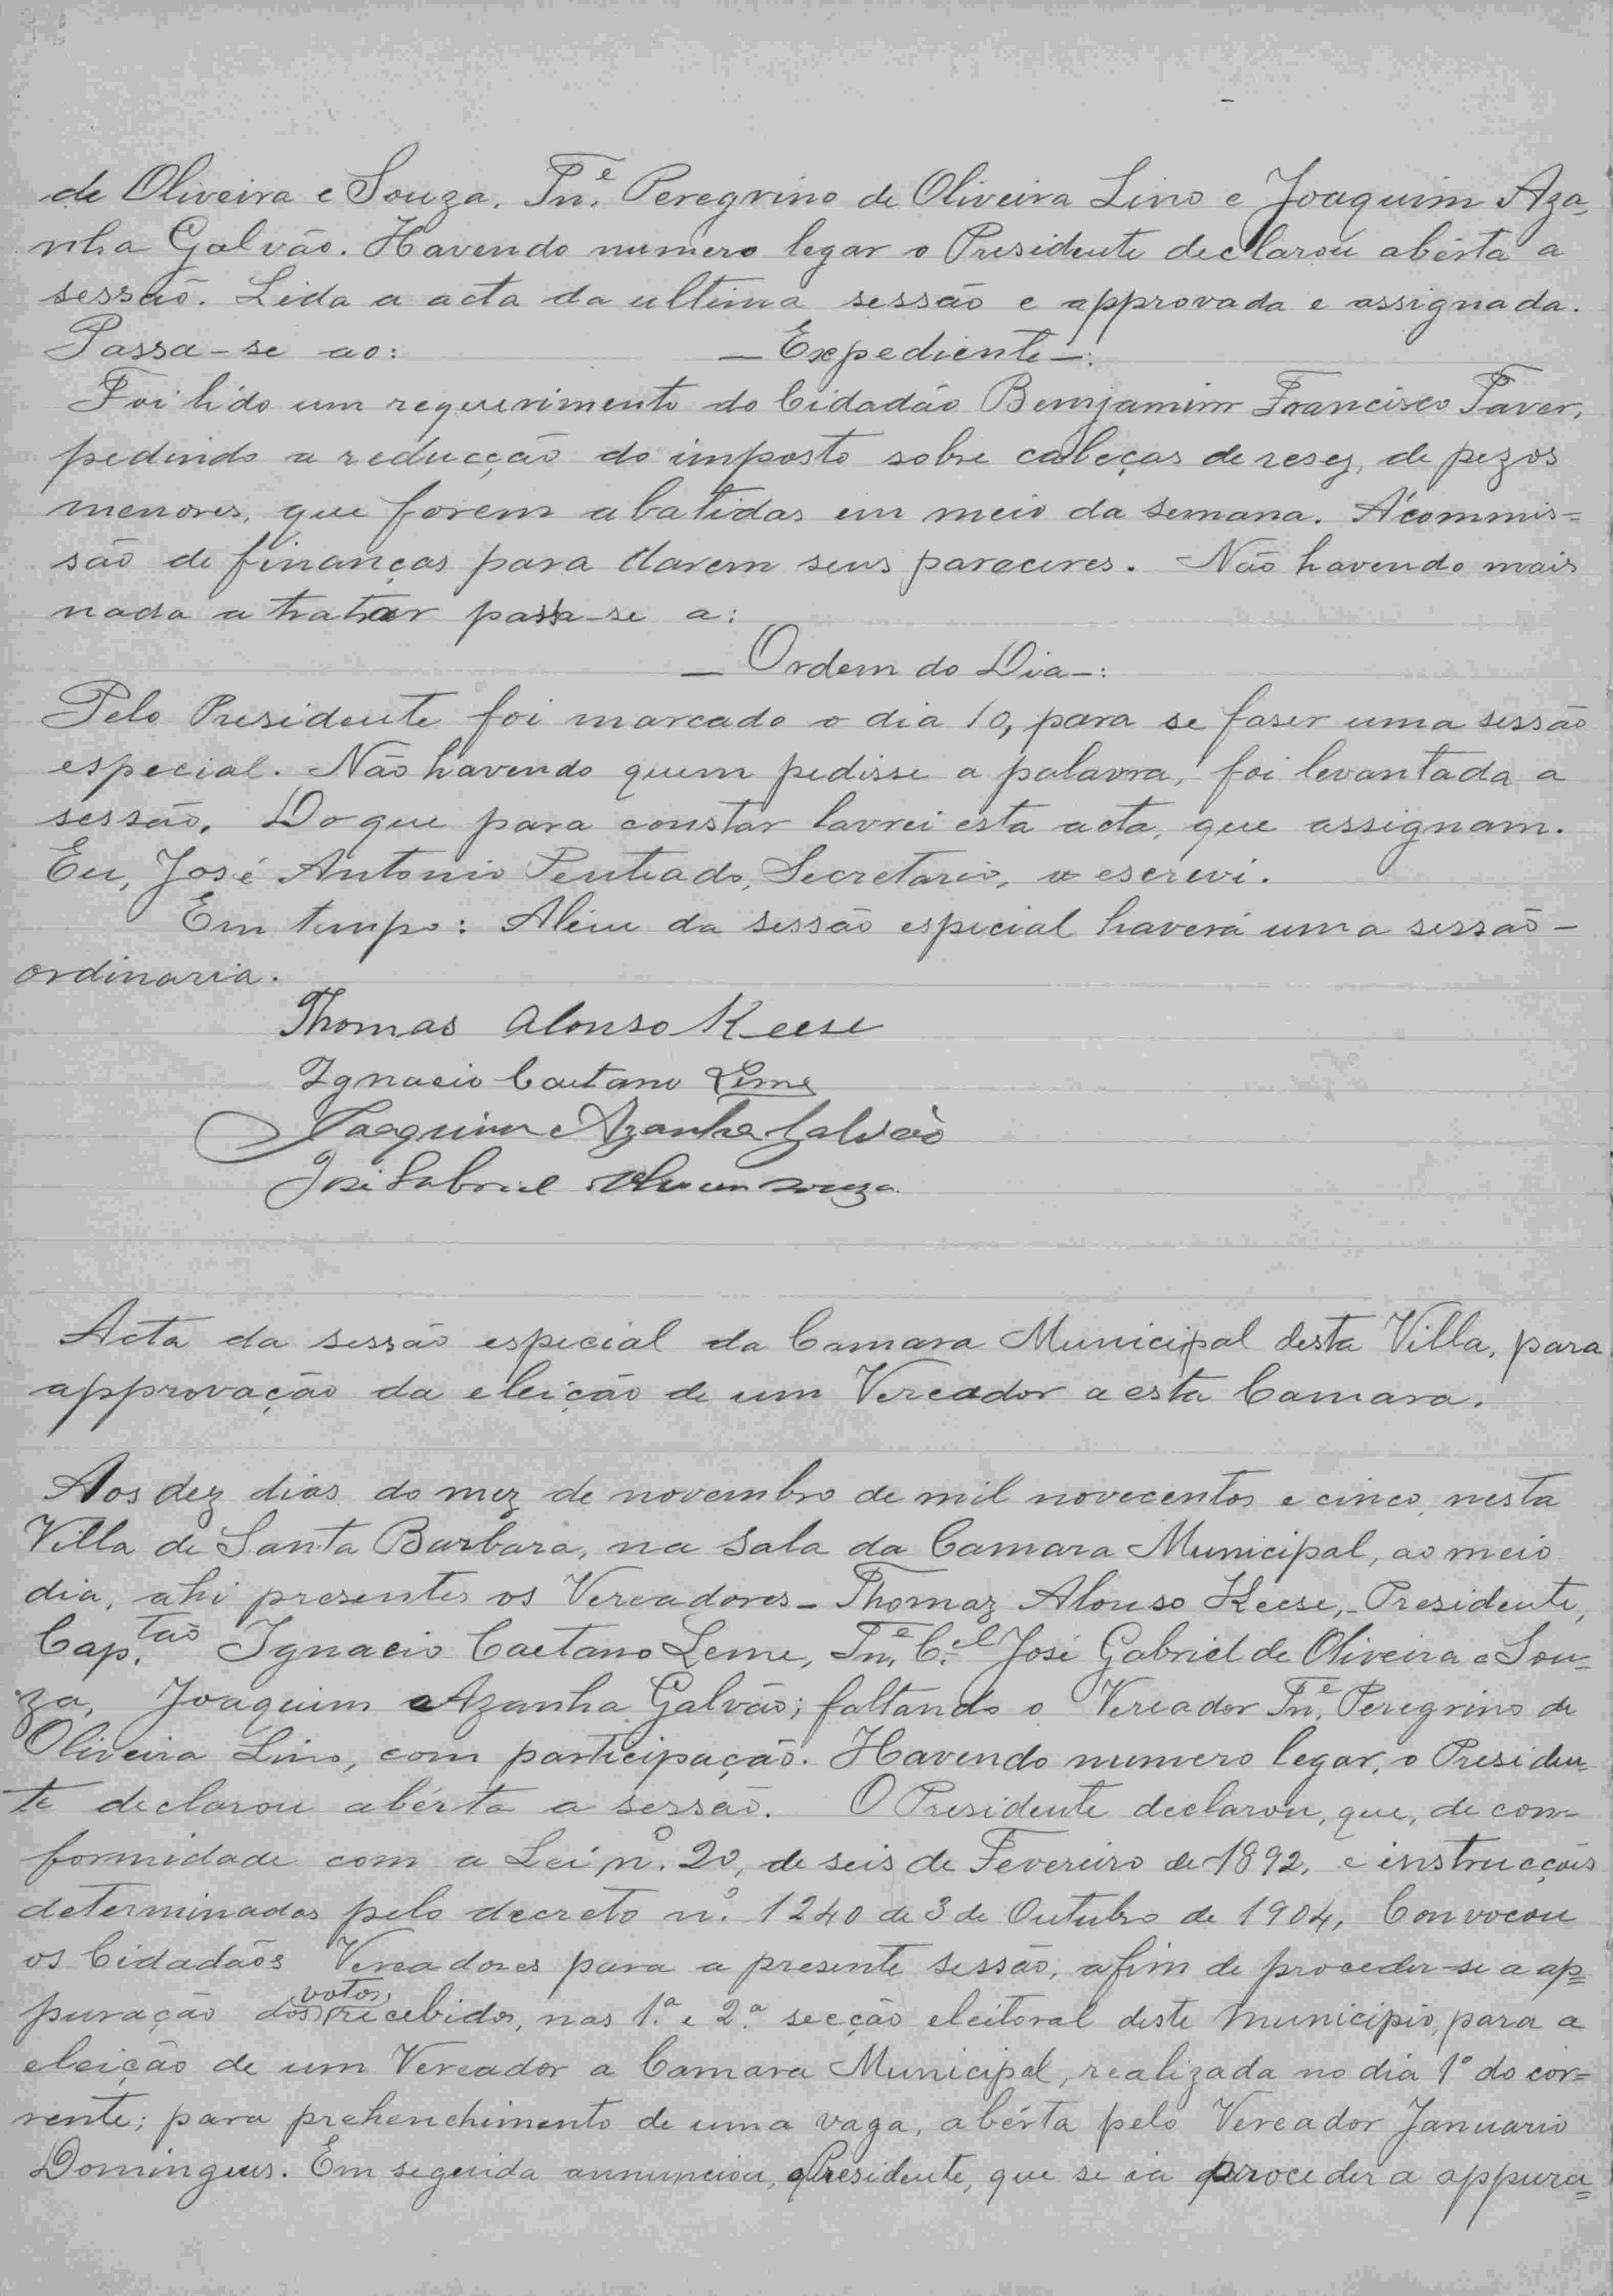 de Oliveira e Souza. Tn.e Peregrino de Oliveira Lino e Joaquim Aza-
nha Galvão. Havendo numero legar o Presidente declarou abérta a
sessão. Lida a acta da ultima sessão e approvada e assignada.
Passa-se ao: — Expediente —:
Foi lido um requerimento do Cidadão Bemjamim Francisco Taver,
pedindo a reducção do imposto sobre cabeças de resez, de pezos
menores, que forem abatidas em meio da semana. Á commis=
são de finanças para darem seus pareceres. Não havendo mais
nada a tratar passa-se a:
— Ordem do Dia —:
Pelo Presidente foi marcado o dia 10, para se faser uma sessão
especial. Não havendo quem pedisse a palavra, foi levantada a
sessão. Do que para constar lavrei esta acta, que assignam.
Eu, José Antonio Penteado, Secretario, o escrevi.
Em tempo: Além da sessão especial haverá uma sessão -
ordinaria.
Thomas Alonso Keese
Ignacio Caetano Leme
Joaquim Azanha Galvão
José Gabriel Oliveira Souza
Acta da sessão especial da Camara Municipal desta Villa, para
approvação da eleição de um Vereador a esta Camara.
Aos dez dias do mez de novembro de mil novecentos e cinco, nesta
Villa de Santa Barbara, na Sala da Camara Municipal, ao meio
dia, ahi presentes os Vereadores - Thomaz Alonso Keese, - Presidente,
Cap.tão Ignacio Caetano Leme, Tn.e C.el José Gabriel de Oliveira e Sou=
za, Joaquim Azanha Galvão; faltando o Vereador Tn.e Peregrino de
Oliveira Lino, com participação. Havendo numero legar, o Presiden-
te declarou abérta a sessão. O Presidente declarou, que, de con=
formidade com a Lei n.º 20, de seis de Fevereiro de 1892, e instrucções
determinadas pelo decreto n.º 1240 de 3 de Outubro de 1904, Convocou
os Cidadãos Vereadores para a presente sessão, afim de proceder-se a ap=
puração dos votos recebidos, nas 1.ª e 2.ª secção eleitoral deste Municipio, para a
eleição de um Vereador a Camara Municipal, realizada no dia 1º do cor=
rente; para prehenchimento de uma vaga, abérta pelo Vereador Januario
Domingues. Em seguida annunciou, o Presidente, que se ia proceder a appura=